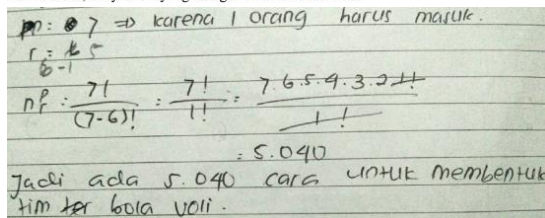 n : 7 ⇒ karena 1 orang harus masuk.
r = 5
6-1
nPr : 7! / (7-6)! = 7! / 1! = 7.6.5.4.3.2.1! / 1!
= 5.040
Jadi ada 5.040 cara untuk membentuk
tim bola voli.